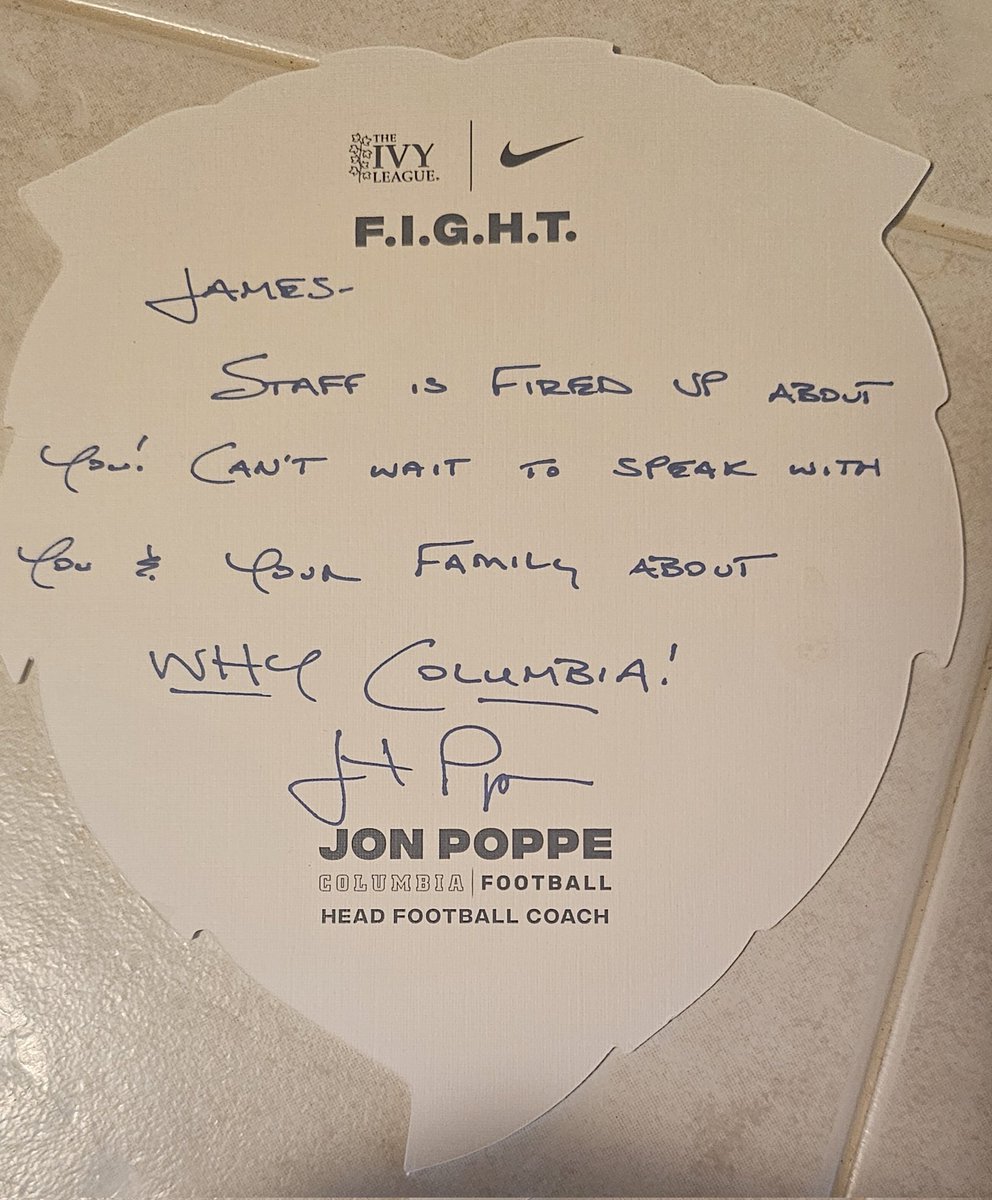 THE
IVY
LEAGUE.
F.I.G.H.T.
JAMES-
STAFF IS FIRED UP ABOUT
YOU! CAN'T WAIT TO SPEAK WITH
YOU & YOUR FAMILY ABOUT
WHY COLUMBIA!
JON POPPE
COLUMBIA | FOOTBALL
HEAD FOOTBALL COACH